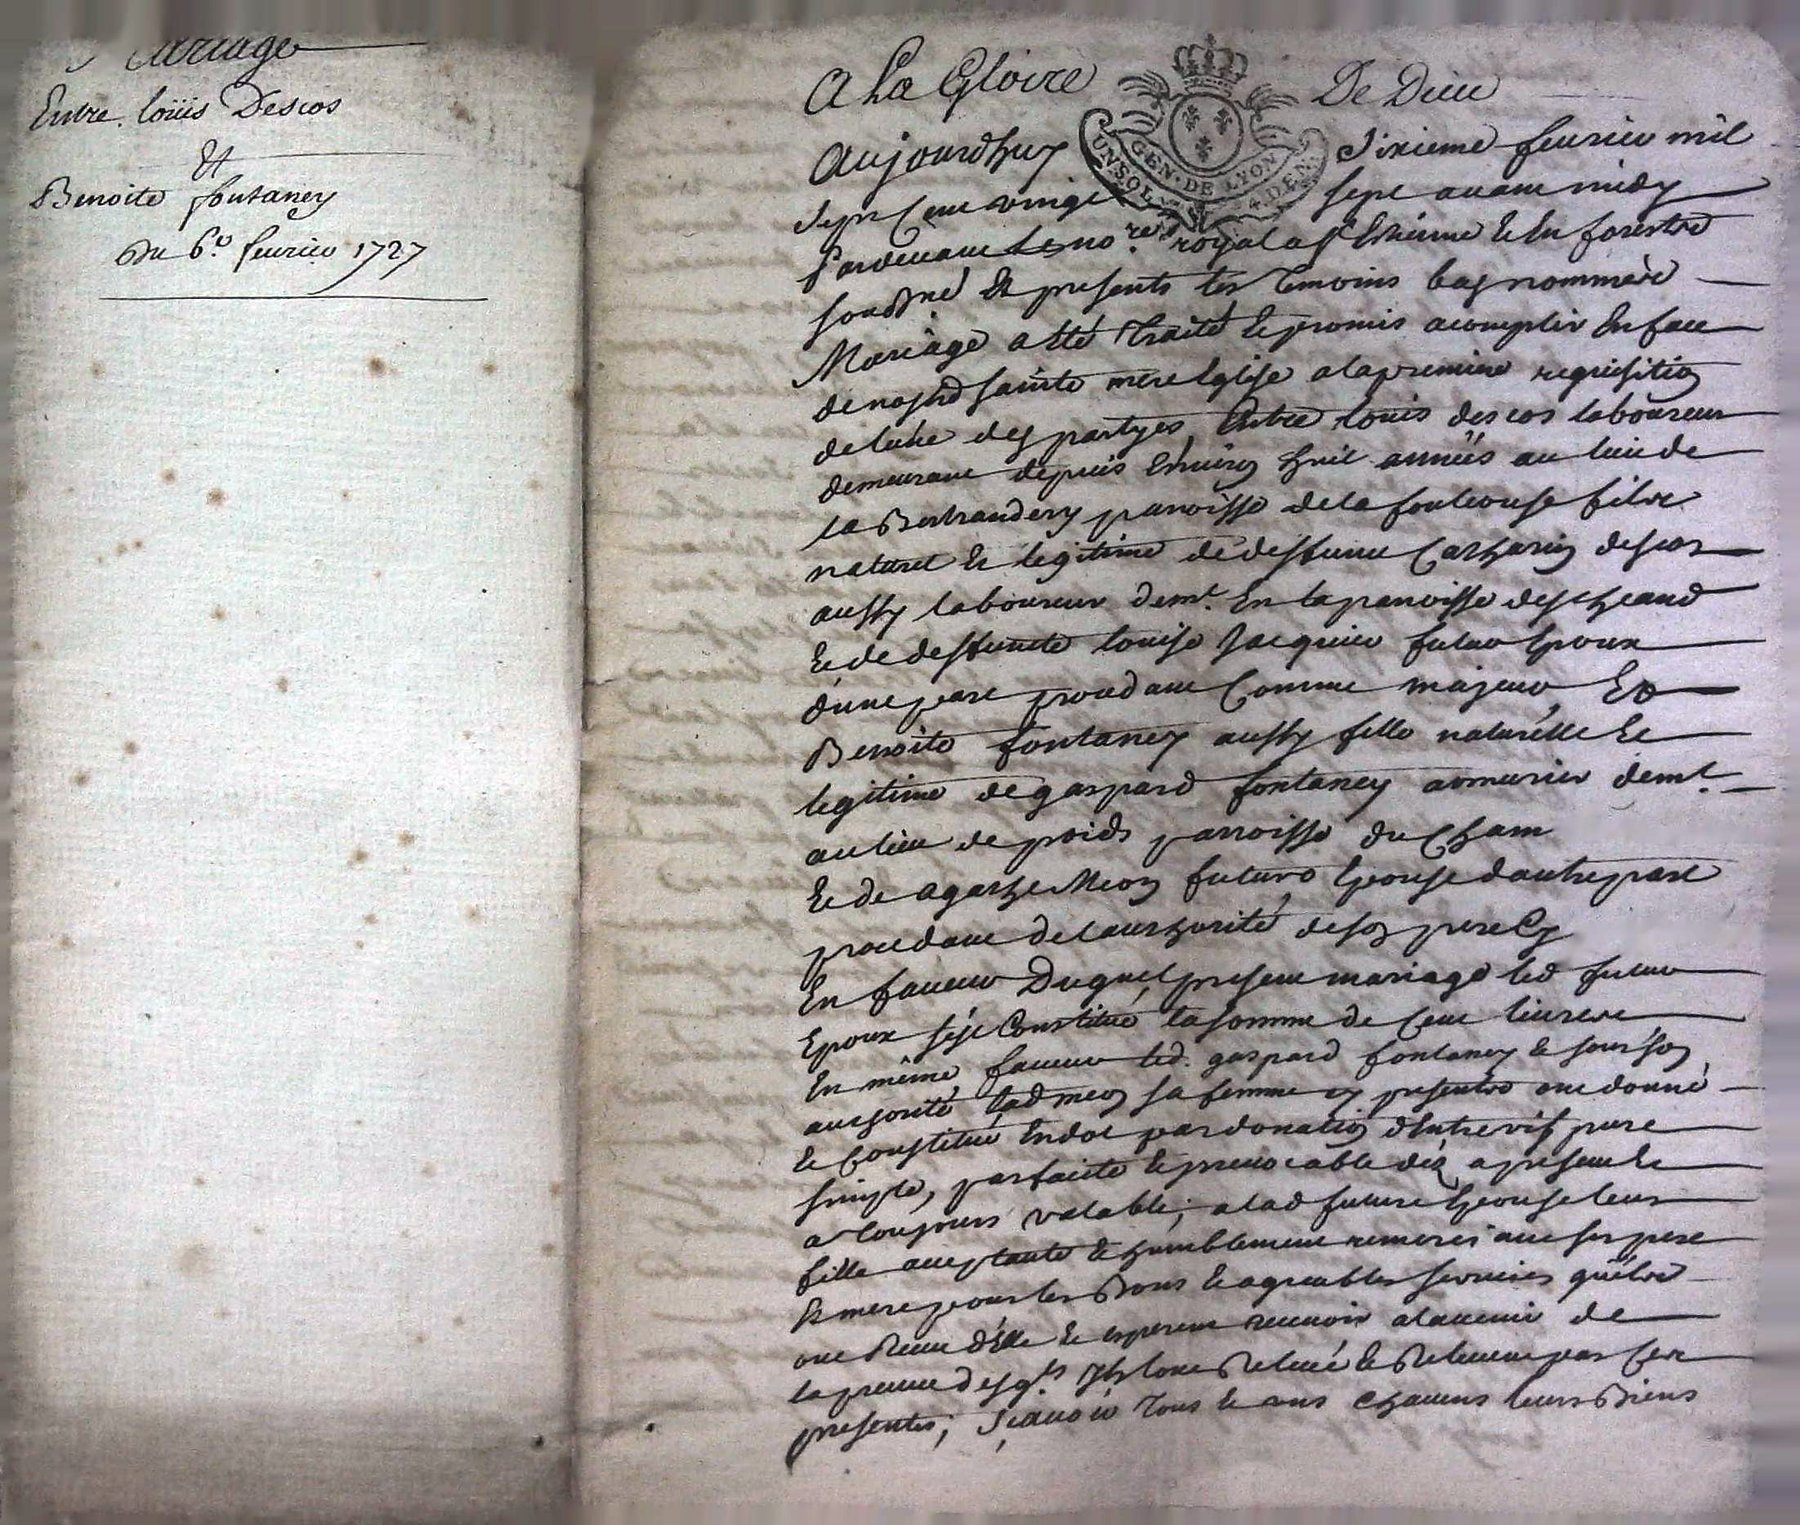 Mariage
Entre loüis Descos
Et
Benoite fontaney
Du 6e. feurier 1727
A La Gloire De Dieu
GEN · DE LYON
UN SOL 4 DEN
Aujourdhuy sixieme feurier mil
sept Cent vingt sept auant midy
Pardeuant le no.re royal a St Etienne & En forestz
soubs.né & presents les Temoins bas nommére
Mariage a été Traité & promis acomplir En face
de nostre sainte mere Eglise a la premiere requisition
de lune des partyes Entre louis descos laboureur
demeurant depuis Enuiron huit annéés au lieu de
la Bertrandery parroisse de la fouleouse filx
naturel & legitime de deffunct Catharin descos
aussy laboureur demt. En la parroisse
& de deffuncte louise Jacquier futur Epoux
d'une part procedant Comme majeur, Et
Benoite fontaney aussy fille naturelle &
legitime de gaspard fontaney armurier demt.
au lieu de poids parroisse du Cham
& de agathe Meon future Epouse dautre part
procedant de lauthorité de son pere Cy
En faueur Duquel present mariage led futur
Epoux s'est Constitué la somme de Cent liures
En même faueur led. gaspard fontaney & sous son
authorité lad meon sa femme cy presentes ont donné
& Constitué En dot par donation d'Entre vifs pure
simple, parfaite & jrreuocable dez a present &
a toujours valable; a lad future Epouse leur
fille acceptante & humblement remerciant ses pere
& mere pour les Bons & agreables seruices quélle
ont Receu d'élle & esperent receuoir alauenir de
la preuue desqls jls lont Releué & Releuent par Ces
presentes; Scauoir Tous & uns Chacuns leurs Biens